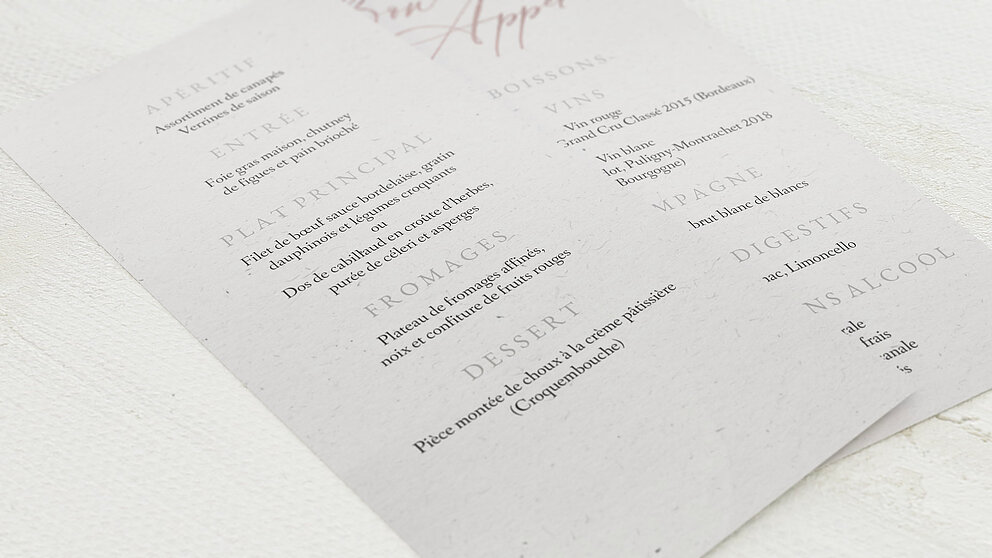 APÉRITIF
Assortiment de canapés
Verrines de saison
ENTRÉE
Foie gras maison, chutney
de figues et pain brioché
PLAT PRINCIPAL
Filet de bœuf sauce bordelaise, gratin
dauphinois et légumes croquants
ou
Dos de cabillaud en croûte d'herbes,
purée de céleri et asperges
FROMAGES
Plateau de fromages affinés,
noix et confiture de fruits rouges
DESSERT
Pièce montée de choux à la crème pâtissière
(Croquembouche)
BOISSONS
VINS
Vin rouge
Grand Cru Classé 2015 (Bordeaux)
Vin blanc
lot, Puligny-Montrachet 2018
Bourgogne)
MPAGNE
brut blanc de blancs
DIGESTIFS
nac, Limoncello
NS ALCOOL
rale
frais
anale
is